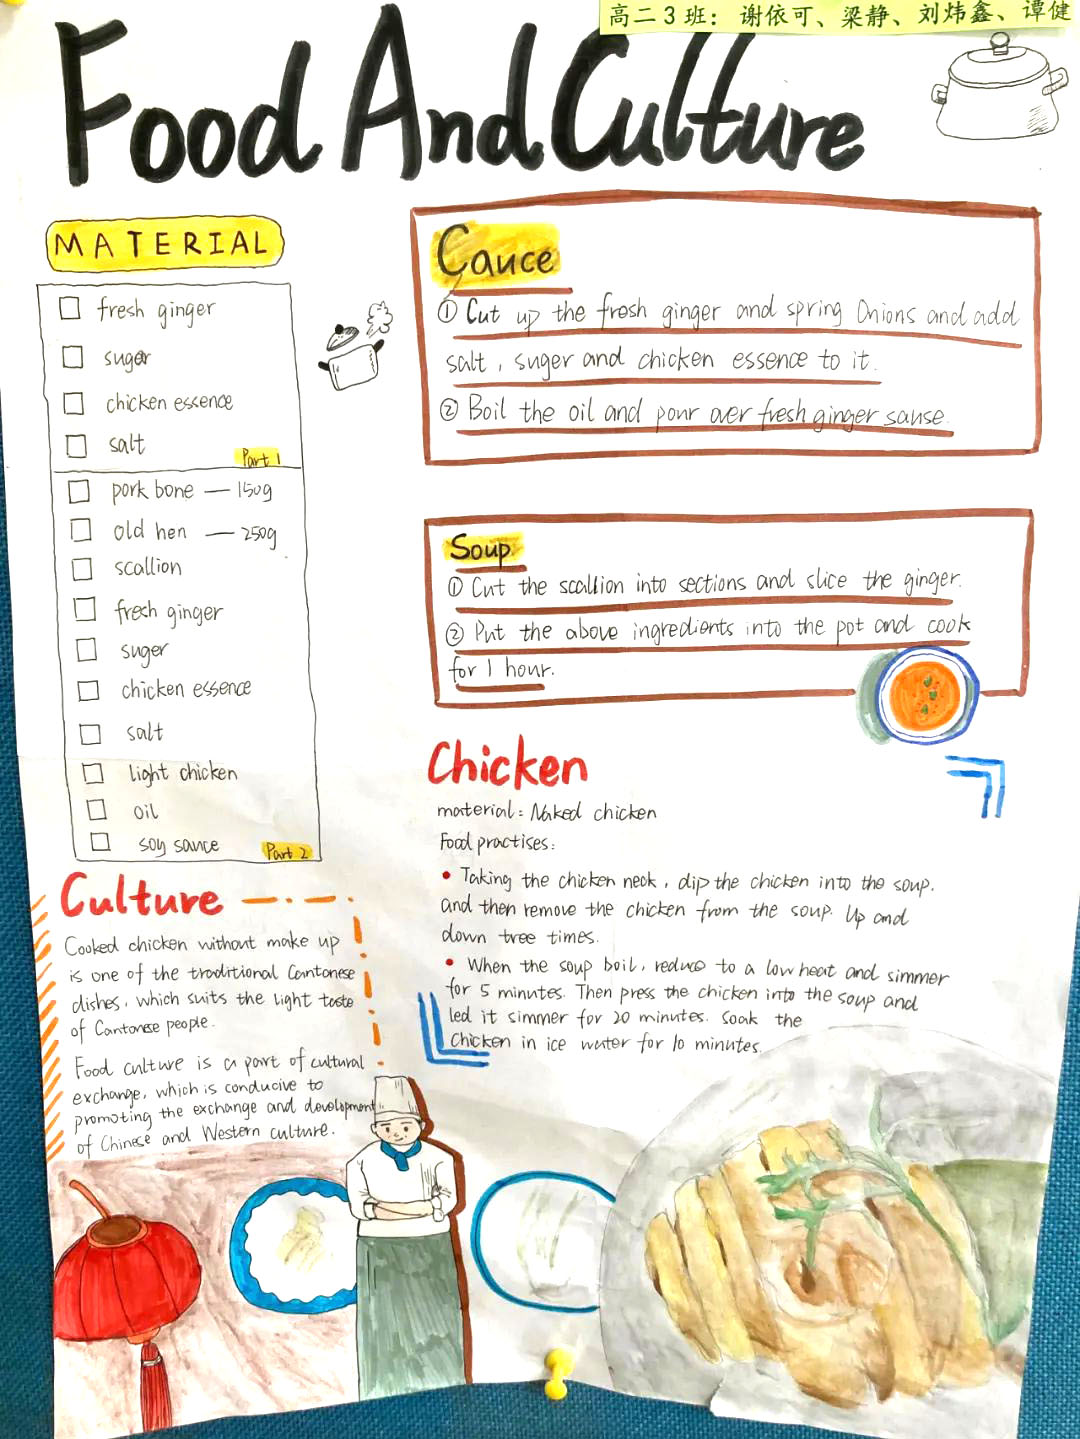 高二3班：谢依可、梁静、刘炜鑫、谭健
Food And Culture
MATERIAL
fresh ginger
suger
chicken essence
salt
Part 1
pork bone — 150g
old hen — 250g
scallion
fresh ginger
suger
chicken essence
salt
light chicken
oil
soy sauce
Part 2
Cauce
① Cut up the fresh ginger and spring Onions and add
salt, suger and chicken essence to it.
② Boil the oil and pour over fresh ginger sause.
Soup
① Cut the scallion into sections and slice the ginger.
② Put the above ingredients into the pot and cook
for 1 hour.
Chicken
material: Naked chicken
Food practises:
• Taking the chicken neck, dip the chicken into the soup.
and then remove the chicken from the soup. Up and
down tree times.
• When the soup boil, reduce to a low heat and simmer
for 5 minutes. Then press the chicken into the soup and
led it simmer for 20 minutes. Soak the
chicken in ice water for 10 minutes.
Culture
Cooked chicken without make up
is one of the traditional Cantonese
dishes, which suits the light taste
of Cantonese people.
Food culture is a part of cultural
exchange, which is conducive to
promoting the exchange and development
of Chinese and Western culture.